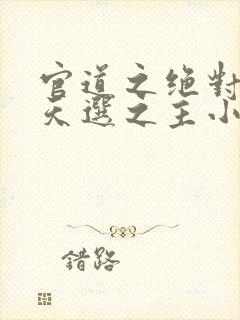 官道之绝對
天選之主小
錯路